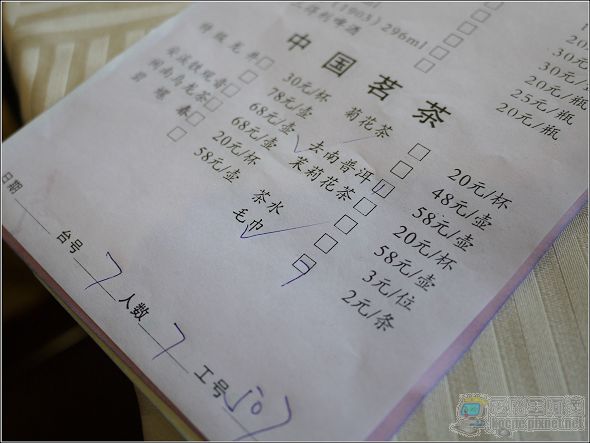 (1903) 296ml
得利啤酒
30元/
20元/瓶
25元/瓶
20元/瓶
中国茗茶
特级龙井 □ 30元/杯 菊花茶 □ 20元/杯
78元/壶 48元/壶
安溪铁观音 □ 68元/壶 云南普洱 □ 58元/壶
闽南乌龙茶 □ 68元/壶 茉莉花茶 □ 20元/杯
碧螺春 □ 20元/杯 □ 58元/壶
□ 58元/壶 茶水 □ 3元/位
毛巾 □ 2元/条
日期 台号 7 人数 7 工号